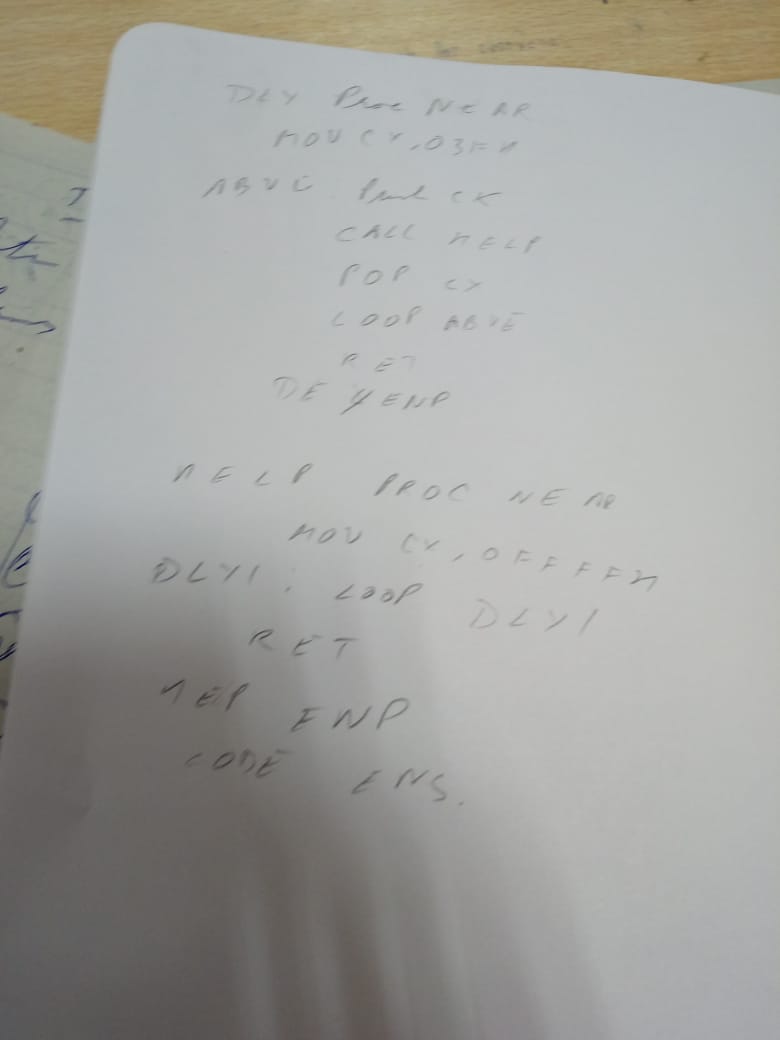 DLY Proc NEAR
MOV CX, 03FH
ABVE Push CX
CALL HELP
POP CX
LOOP ABVE
RET
DE Y ENP
HELP PROC NEAR
MOV CX, 0FFFFH
DLY1 : LOOP DLY1
RET
HEP ENP
CODE ENS.